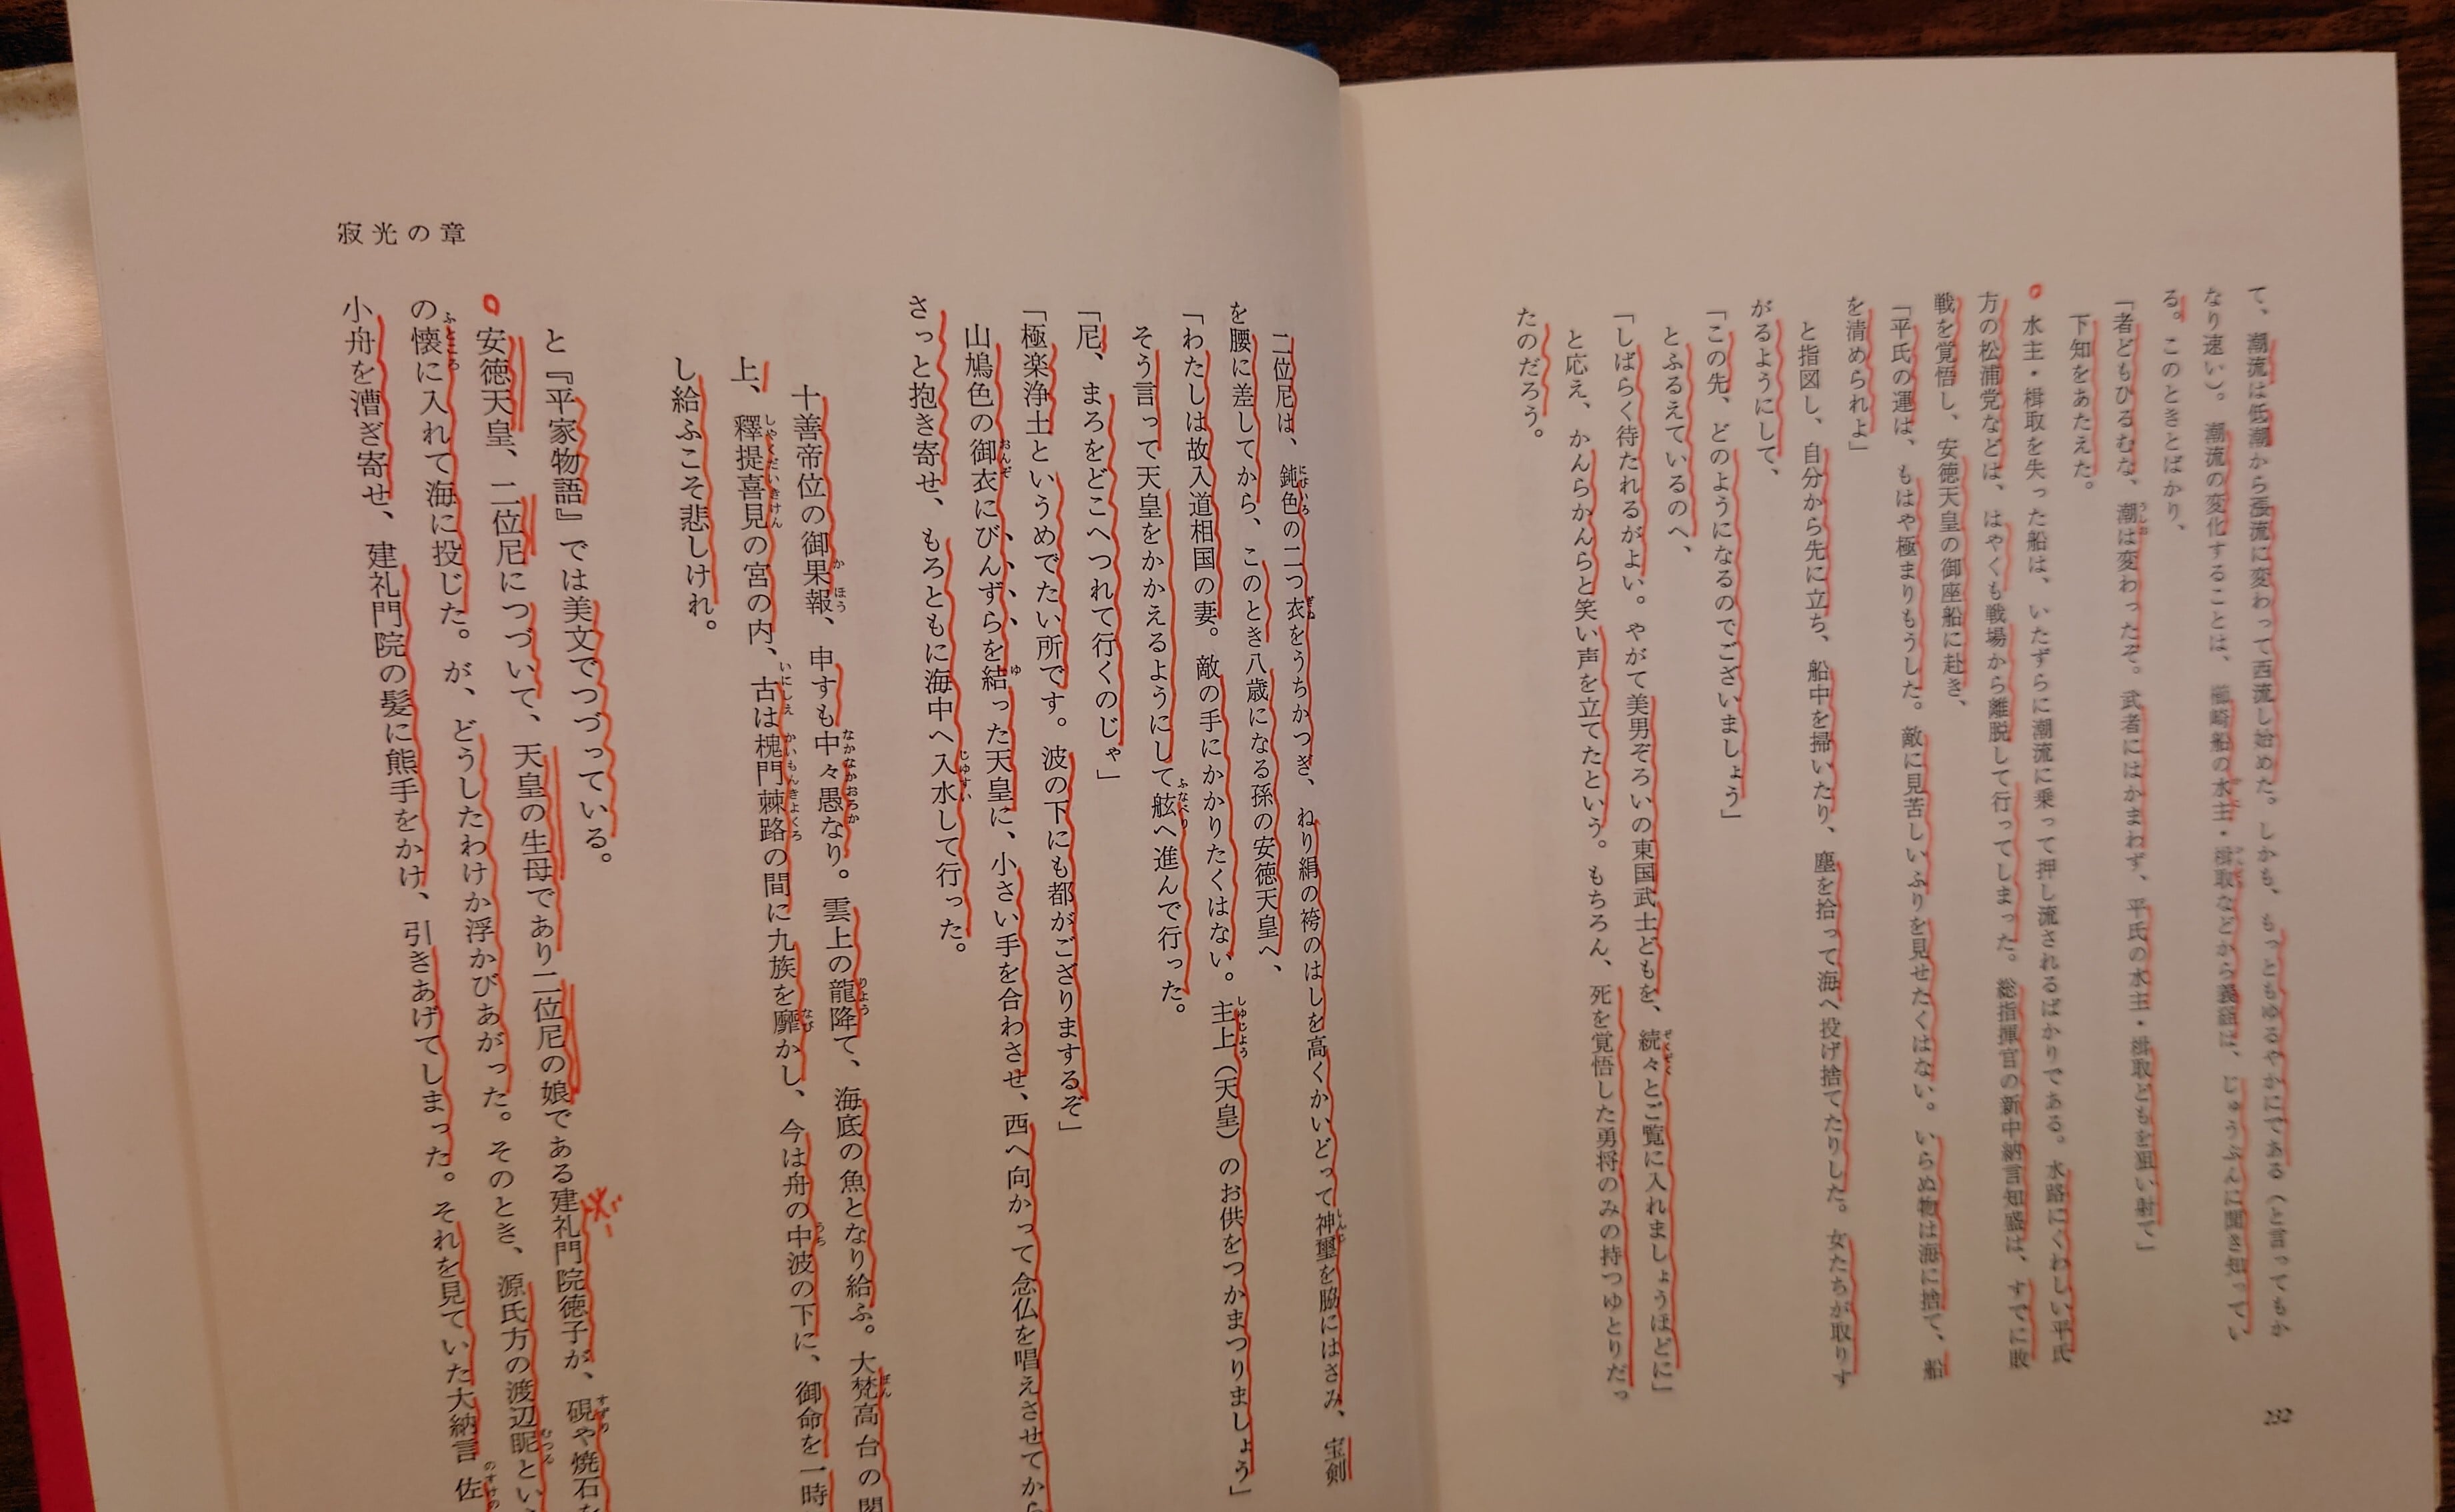 て、潮流は低潮から漲流に変わって西流し始めた。しかも、もっともゆるやかにである（と言ってもか
なり速い）。潮流の変化することは、櫛崎船の水主・楫取などから義経は、じゅうぶんに聞き知ってい
る。このときとばかり、
「者どもひるむな、潮は変わったぞ。武者にはかまわず、平氏の水主・楫取どもを狙い射て」
下知をあたえた。
水主・楫取を失った船は、いたずらに潮流に乗って押し流されるばかりである。水路にくわしい平氏
方の松浦党などは、はやくも戦場から離脱して行ってしまった。総指揮官の新中納言知盛は、すでに敗
戦を覚悟し、安徳天皇の御座船に赴き、
「平氏の運は、もはや極まりもうした。敵に見苦しいふりを見せたくはない。いらぬ物は海に捨て、船
を清められよ」
と指図し、自分から先に立ち、船中を掃いたり、塵を拾って海へ投げ捨てたりした。女たちが取りす
がるようにして、
「この先、どのようになるのでございましょう」
とふるえているのへ、
「しばらく待たれるがよい。やがて美男ぞろいの東国武士どもを、続々とご覧に入れましょうほどに」
と応え、かんらかんらと笑い声を立てたという。もちろん、死を覚悟した勇将のみの持つゆとりだっ
たのだろう。
232
二位尼は、鈍色の二つ衣をうちかつぎ、ねり絹の袴のはしを高くかいどって神璽を脇にはさみ、宝剣
を腰に差してから、このとき八歳になる孫の安徳天皇へ、
「わたしは故入道相国の妻。敵の手にかかりたくはない。主上（天皇）のお供をつかまつりましょう」
そう言って天皇をかかえるようにして舷へ進んで行った。
「尼、まろをどこへつれて行くのじゃ」
「極楽浄土というめでたい所です。波の下にも都がござりまするぞ」
山鳩色の御衣にびんずらを結った天皇に、小さい手を合わさせ、西へ向かって念仏を唱えさせてから
さっと抱き寄せ、もろともに海中へ入水して行った。
十善帝位の御果報、申すも中々愚なり。雲上の龍降て、海底の魚となり給ふ。大梵高台の閣
上、釋提喜見の宮の内、古は槐門棘路の間に九族を靡かし、今は舟の中波の下に、御命を一時
し給ふこそ悲しけれ。
と『平家物語』では美文でつづっている。
安徳天皇、二位尼につづいて、天皇の生母であり二位尼の娘である建礼門院徳子が、硯や焼石を
の懐に入れて海に投じた。が、どうしたわけか浮かびあがった。そのとき、源氏方の渡辺眤とい
小舟を漕ぎ寄せ、建礼門院の髪に熊手をかけ、引きあげてしまった。それを見ていた大納言佐
寂光の章